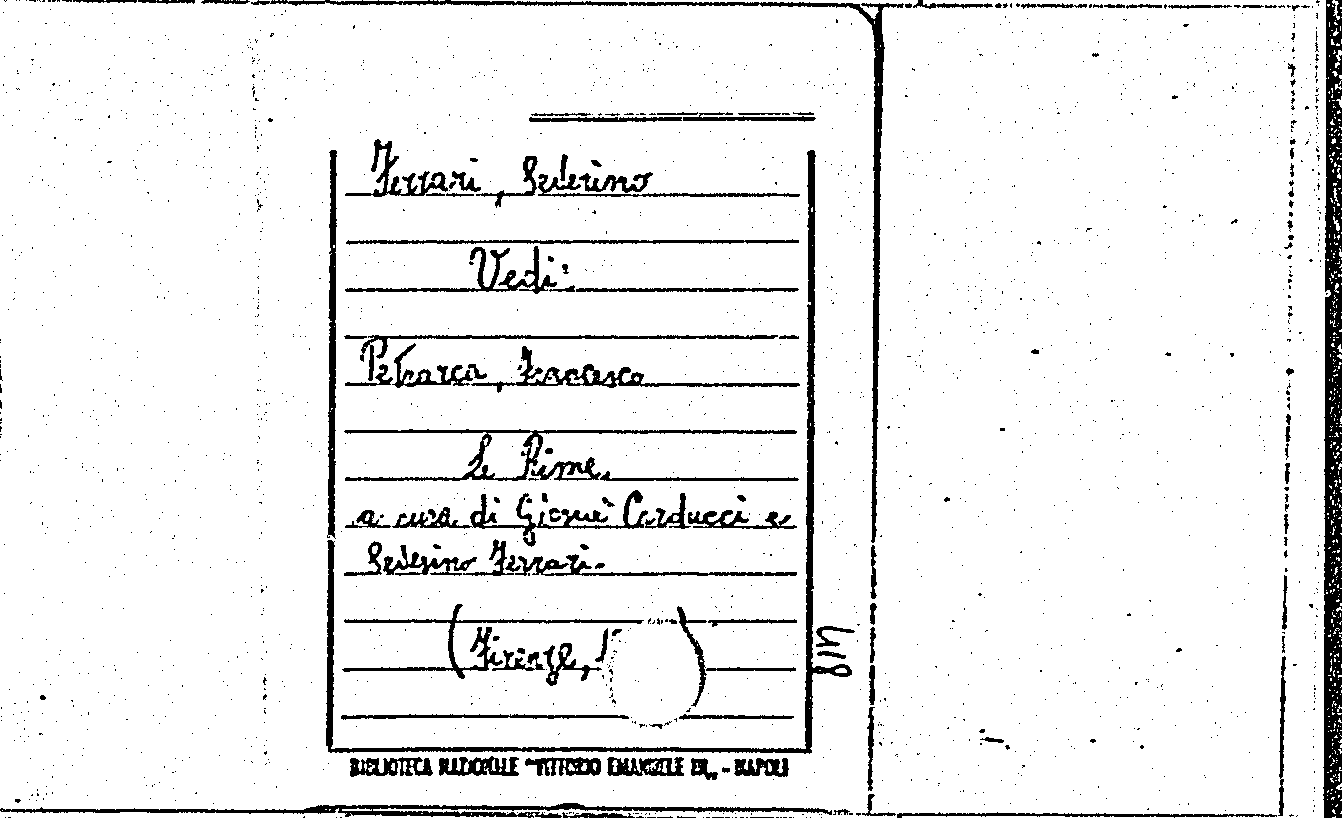 Ferrari, Severino
Vedi:
Petrarca, Francesco
Le Rime.
a cura di Giosuè Carducci e
Severino Ferrari.
(Firenze, 1 )
BIBLIOTECA NAZIONALE "VITTORIO EMANUELE III„ - NAPOLI